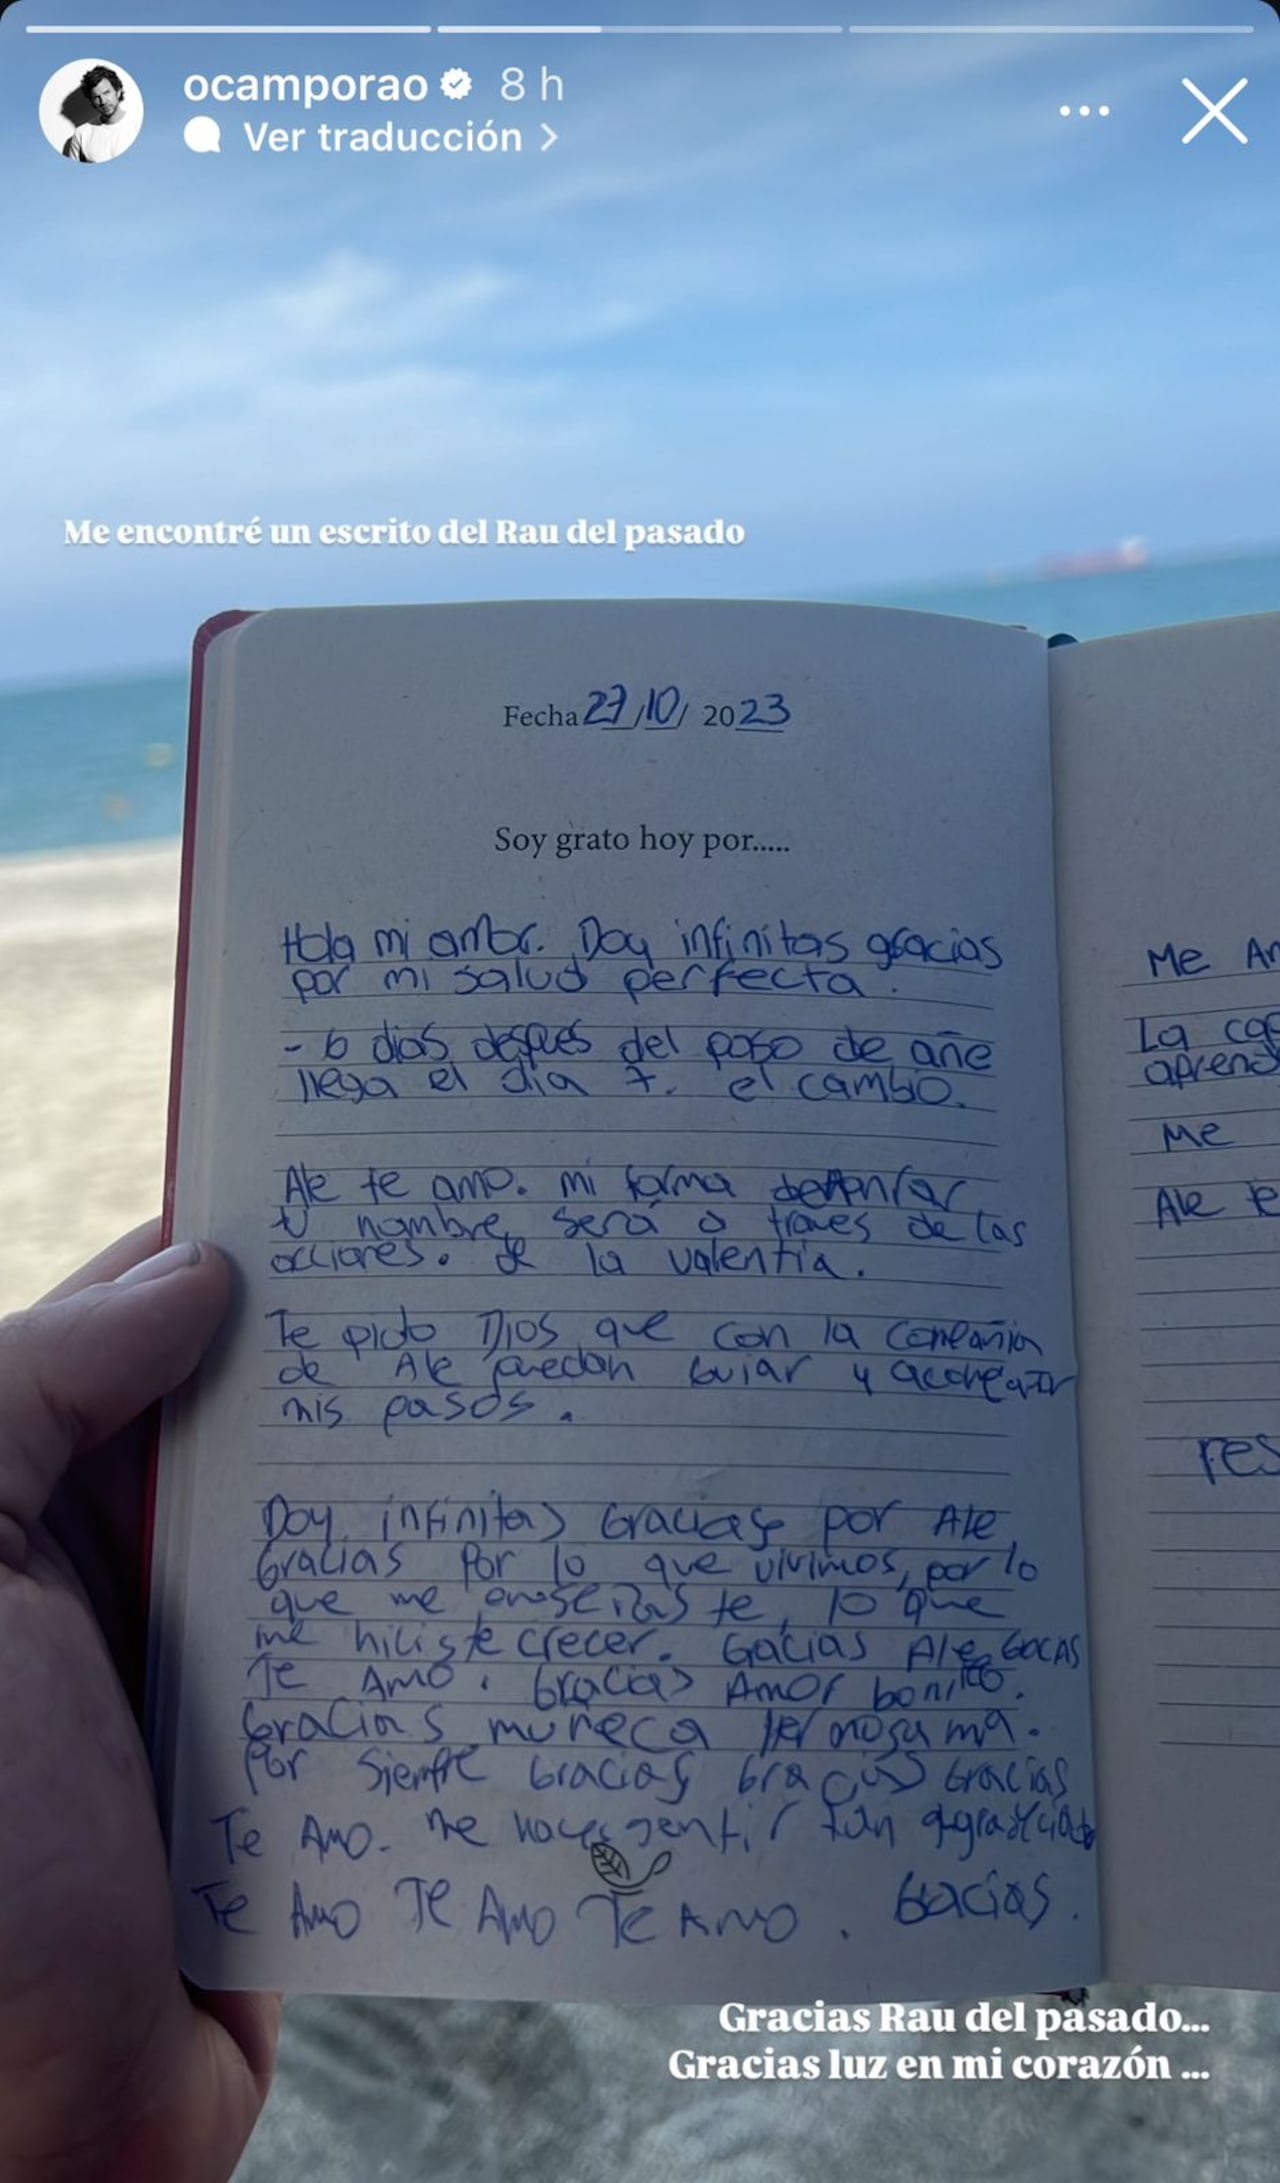 ocamporao 8 h
Ver traducción
Me encontré un escrito del Rau del pasado
Fecha 27/10/ 2023
Soy grato hoy por.....
Hola mi amor. Doy infinitas gracias
por mi salud perfecta.
- 6 dias después del paso de
llega el dia 7. el cambio.
Ale te amo. mi forma
tu nombre será a traves de las
acciones. de la valentía.
Te pido Dios que con la compañia
de Ale puedan guiar y
mis pasos.
Doy infinitas Gracias por Ale
Gracias Por lo que vivimos, por lo
que me enseñaste, lo que
me hiciste crecer. Gacias Ale
Te Amo. Gracias Amor bonito.
Gracias muñeca
Por siempre Gracias Gracias Gracias
Te Amo. me haces sentir tan
Te Amo Te Amo Te Amo. Gacias.
Me
La
Me
Ale te
res
Gracias Rau del pasado...
Gracias luz en mi corazón ...